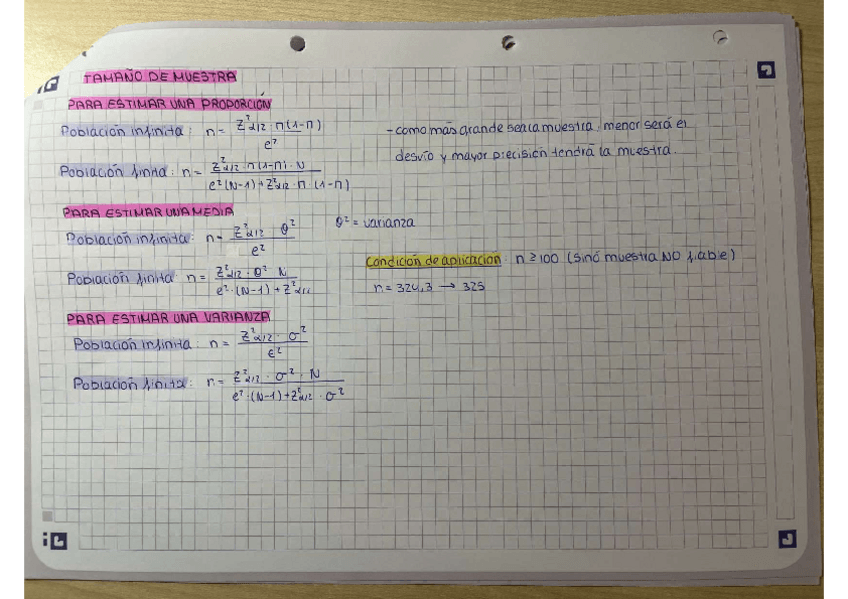 TAMAÑO DE MUESTRA
PARA ESTIMAR UNA PROPORCIÓN
Población infinita: n = Z²α/2 · π(1-π) / e²
- como más grande sea la muestra, menor será el
desvío y mayor precisión tendrá la muestra.
Población finita: n = Z²α/2 · π(1-π) · N / e²(N-1)+Z²α/2 · π · (1-π)
PARA ESTIMAR UNA MEDIA
θ² = varianza
Población infinita: n = Z²α/2 · θ² / e²
Condición de aplicación: n ≥ 100 (sinó muestra NO fiable)
Población finita: n = Z²α/2 · θ² · N / e²·(N-1) + Z²α/2
n = 324,3 → 325
PARA ESTIMAR UNA VARIANZA
Población infinita: n = Z²α/2 · σ² / e²
Población finita: n = Z²α/2 · σ² · N / e²·(N-1)+Z²α/2 · σ²